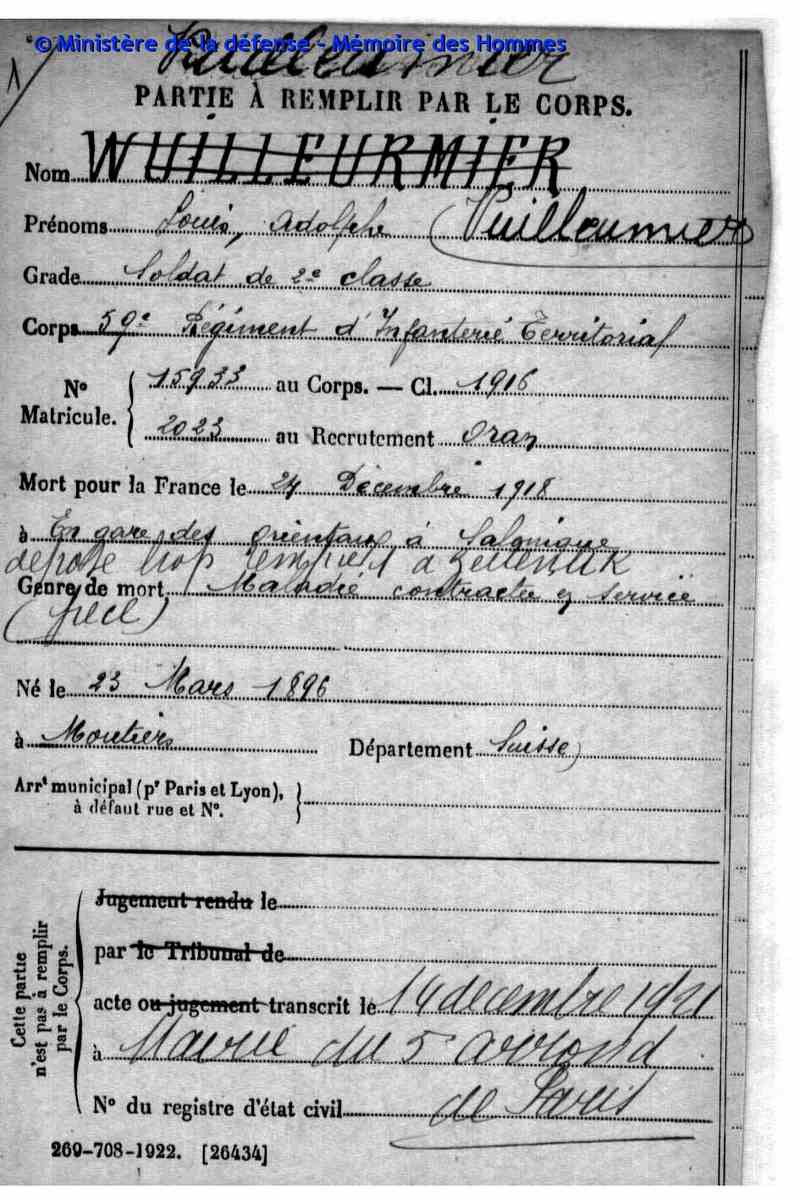 © Ministère de la défense - Mémoire des Hommes
1
Vuilleumier
PARTIE À REMPLIR PAR LE CORPS.
Nom WUILLEURMIER
Prénoms Louis, Adolphe (Vuilleumier)
Grade Soldat de 2e classe
Corps 59e Régiment d'Infanterie Territorial
No Matricule. 15933 au Corps. — Cl. 1916
2023 au Recrutement Oran
Mort pour la France le 24 Décembre 1918
à En gare des orientaux à Salonique
hop temp 1 à Zeitenlik
Genre de mort Maladie contractée en service
Né le 23 Mars 1896
à Moutiers Département Suisse)
Arrt municipal (pr Paris et Lyon),
à défaut rue et No.
Cette partie
n'est pas à remplir
par le Corps.
Jugement rendu le
par le Tribunal de
acte ou jugement transcrit le 14 decembre 1921
à Mairie du 5 arrond
No du registre d'état civil de Paris
269-708-1922. [26434]